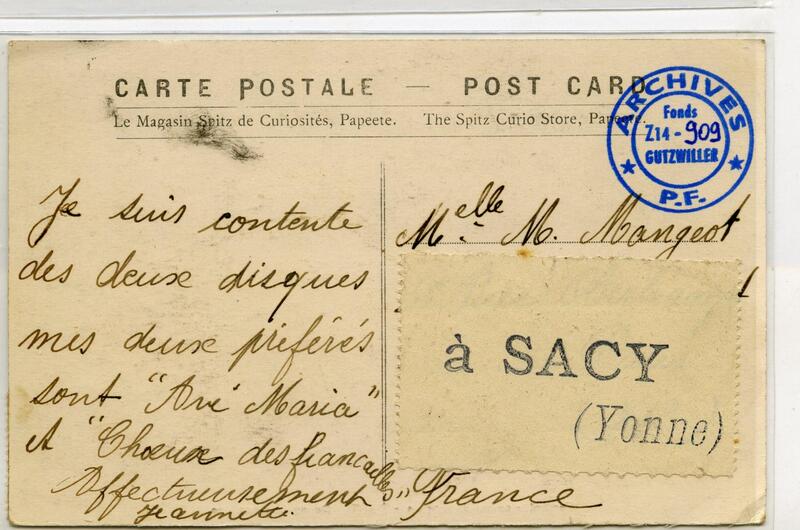 CARTE POSTALE — POST CARD
Le Magasin Spitz de Curiosités, Papeete. The Spitz Curio Store, Papeete.
ARCHIVES
Fonds
Z14-909
GUTZWILLER
P.F.
Je suis contente
des deux disques
mes deux préférés
sont "Avé Maria"
et "Choeur des fiancailles"
Affectueusement
Jeannette.
Melle M. Mangeot
à SACY
(Yonne)
France